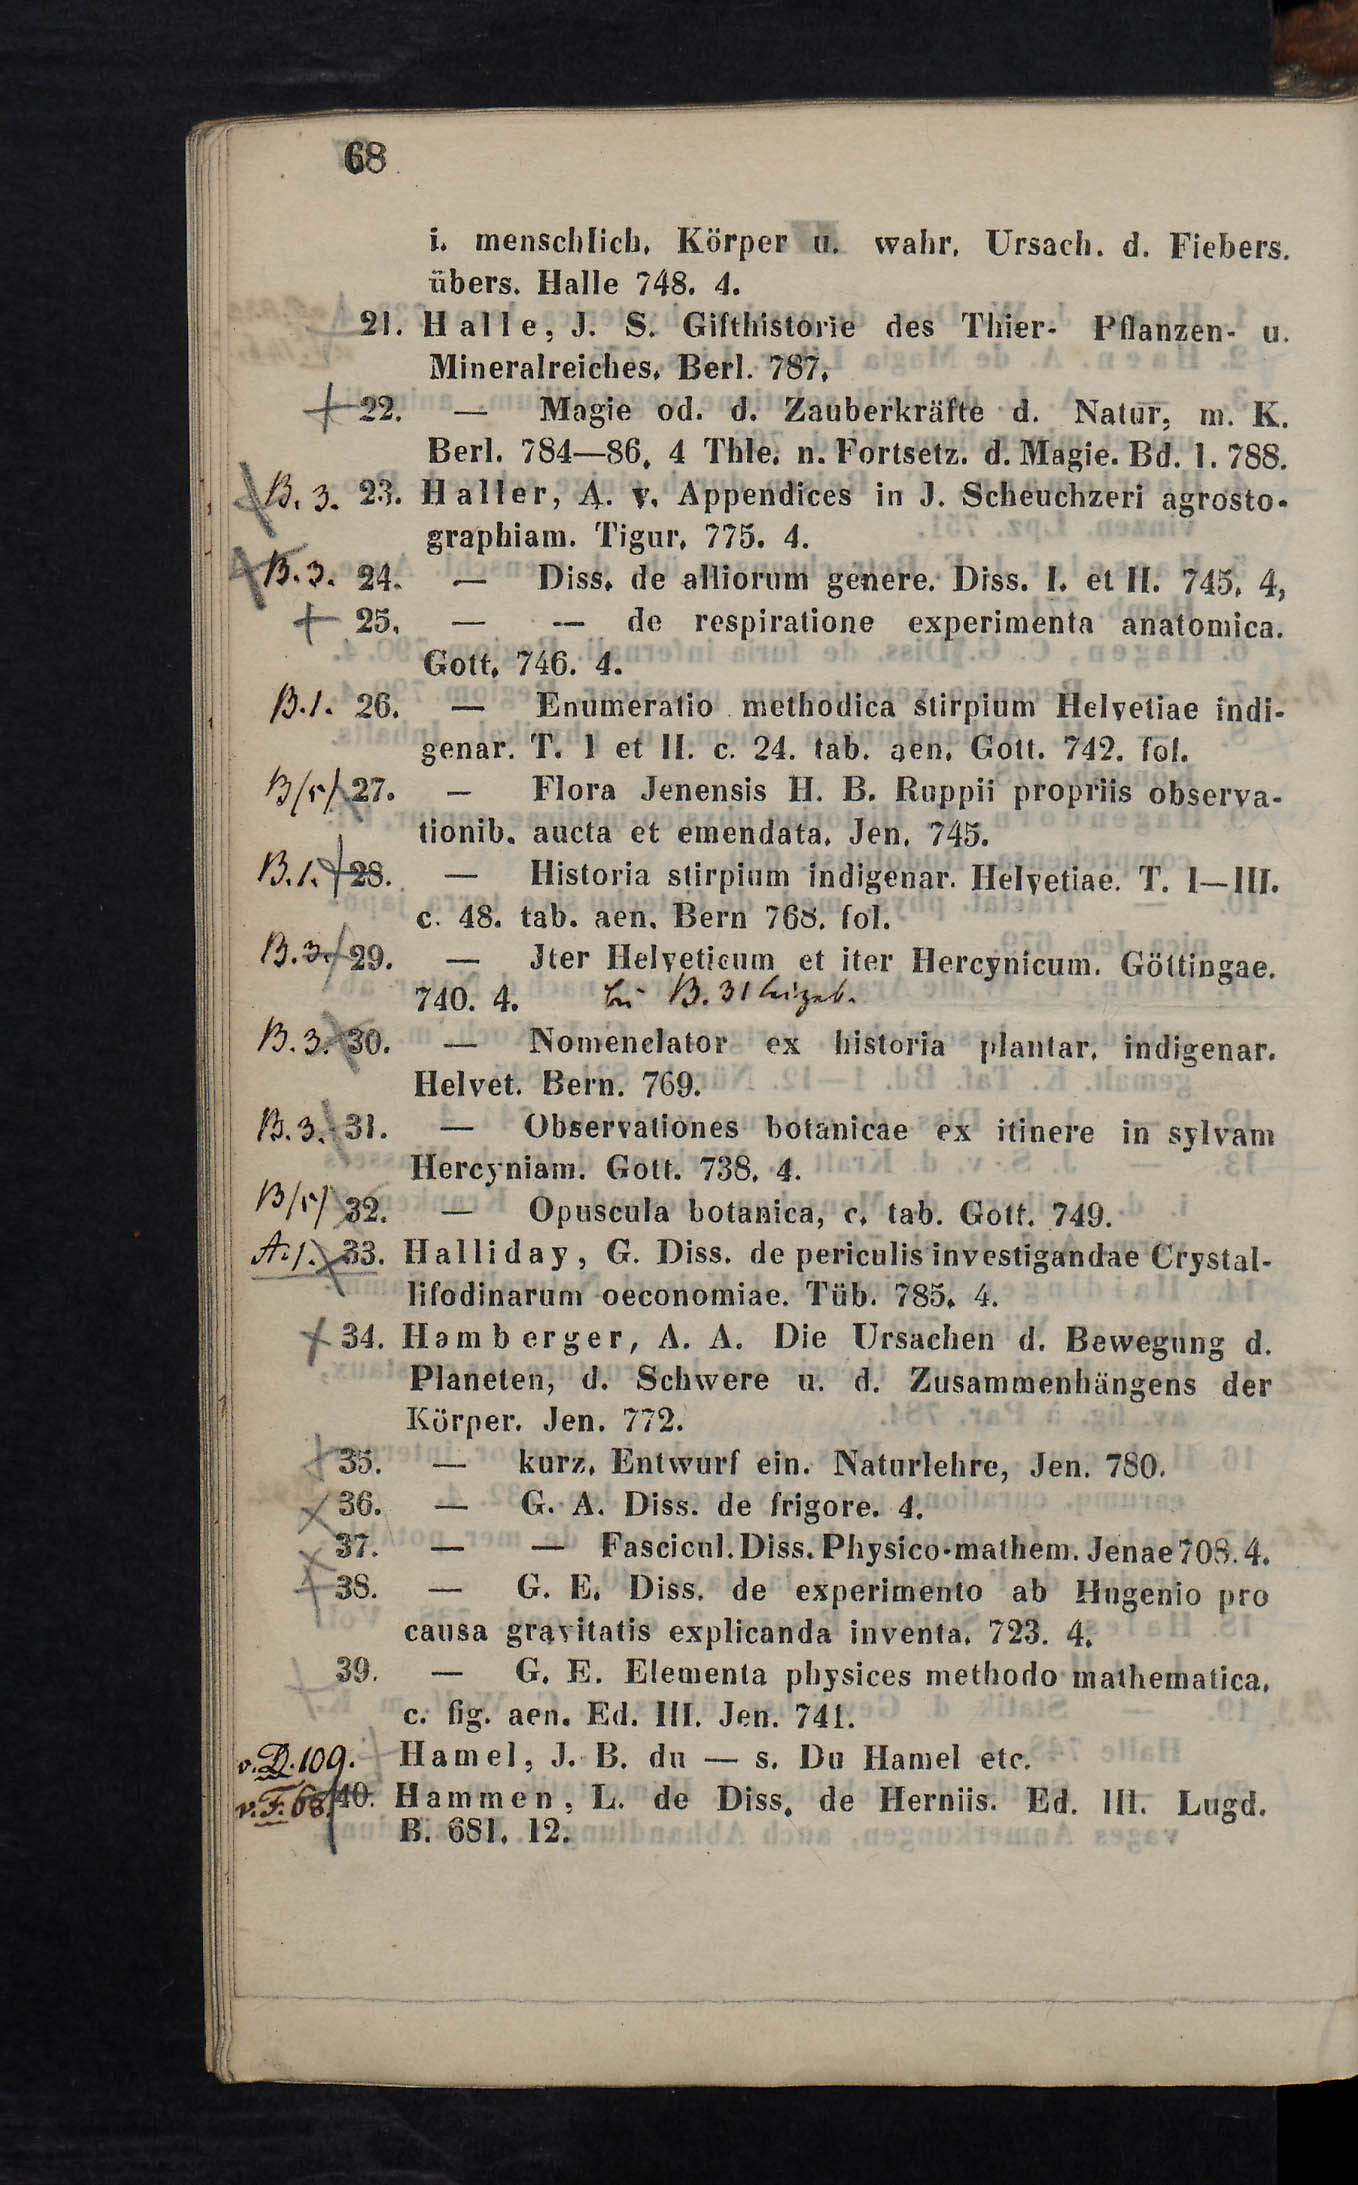 68
i. menschlich. Körper u. wahr. Ursach. d. Fiebers.
übers. Halle 748. 4.
21. Halle, J. S. Gifthistorie des Thier- Pflanzen- u.
Mineralreiches. Berl. 787.
22. — Magie od. d. Zauberkräfte d. Natur, m. K.
Berl. 784—86. 4 Thle. n. Fortsetz. d. Magie. Bd. 1. 788.
B. 3. 23. Haller, A. v. Appendices in J. Scheuchzeri agrosto-
graphiam. Tigur. 775. 4.
B. 3. 24. — Diss. de alliorum genere. Diss. I. et II. 745. 4,
25. — — de respiratione experimenta anatomica.
Gott. 746. 4.
B. 1. 26. — Enumeratio methodica stirpium Helvetiae indi-
genar. T. I et II. c. 24. tab. aen. Gott. 742. fol.
B/5/ 27. — Flora Jenensis H. B. Ruppii propriis observa-
tionib. aucta et emendata. Jen. 745.
B. 1. 28. — Historia stirpium indigenar. Helvetiae. T. I—III.
c. 48. tab. aen. Bern 768. fol.
B. 3. 29. — Jter Helveticum et iter Hercynicum. Göttingae.
740. 4. B. 31
B. 3. 30. — Nomenclator ex historia plantar. indigenar.
Helvet. Bern. 769.
B. 3. 31. — Observationes botanicae ex itinere in sylvam
Hercyniam. Gott. 738. 4.
B/5/ 32. — Opuscula botanica, c. tab. Gott. 749.
A. 1. 33. Halliday, G. Diss. de periculis investigandae Crystal-
lifodinarum oeconomiae. Tüb. 785. 4.
34. Hamberger, A. A. Die Ursachen d. Bewegung d.
Planeten, d. Schwere u. d. Zusammenhängens der
Körper. Jen. 772.
35. — kurz. Entwurf ein. Naturlehre, Jen. 780.
36. — G. A. Diss. de frigore. 4.
37. — — Fascicul. Diss. Physico-mathem. Jenae 708. 4.
38. — G. E. Diss. de experimento ab Hugenio pro
causa gravitatis explicanda inventa. 723. 4.
39. — G. E. Elementa physices methodo mathematica.
c. fig. aen. Ed. III. Jen. 741.
v. D. 109. Hamel, J. B. du — s. Du Hamel etc.
v. F. 68. 40. Hammen, L. de Diss. de Herniis. Ed. III. Lugd.
B. 681. 12.